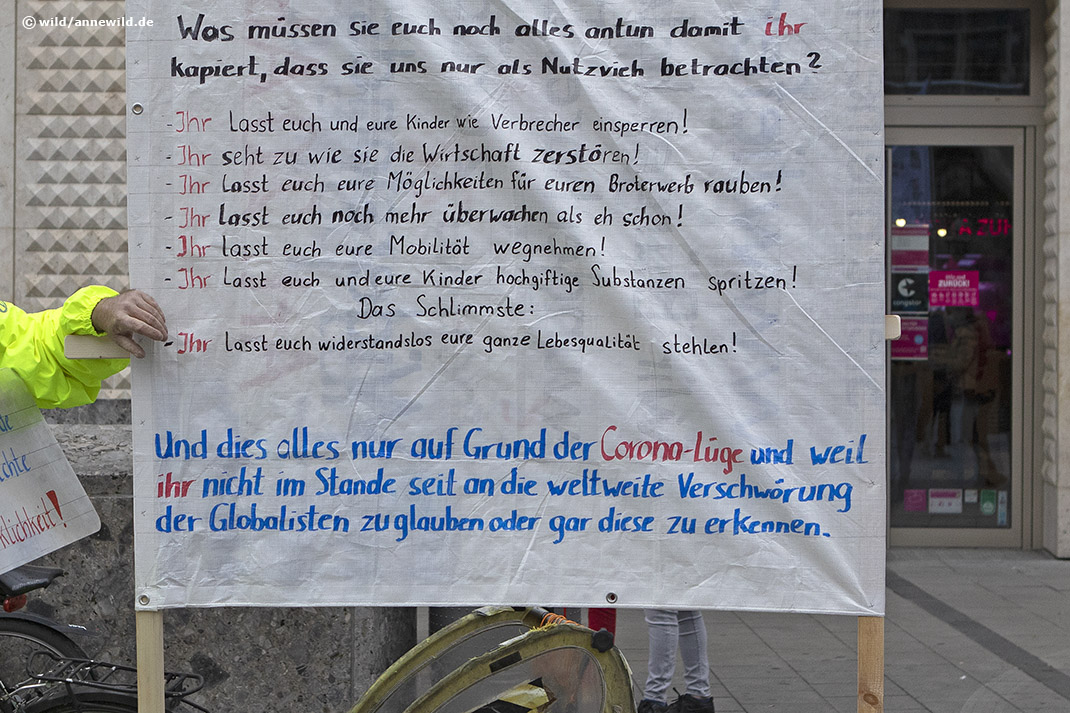 © wild/annewild.de
Was müssen sie euch noch alles antun damit ihr
kapiert, dass sie uns nur als Nutzvieh betrachten?
- Ihr Lasst euch und eure Kinder wie Verbrecher einsperren!
- Ihr seht zu wie sie die Wirtschaft zerstören!
- Ihr Lasst euch eure Möglichkeiten für euren Broterwerb rauben!
- Ihr Lasst euch noch mehr überwachen als eh schon!
- Ihr lasst euch eure Mobilität wegnehmen!
- Ihr Lasst euch und eure Kinder hochgiftige Substanzen spritzen!
Das Schlimmste:
- Ihr Lasst euch widerstandslos eure ganze Lebesqualität stehlen!
Und dies alles nur auf Grund der Corona-Lüge und weil
ihr nicht im Stande seit an die weltweite Verschwörung
der Globalisten zu glauben oder gar diese zu erkennen.
ZURÜCK!
congstar